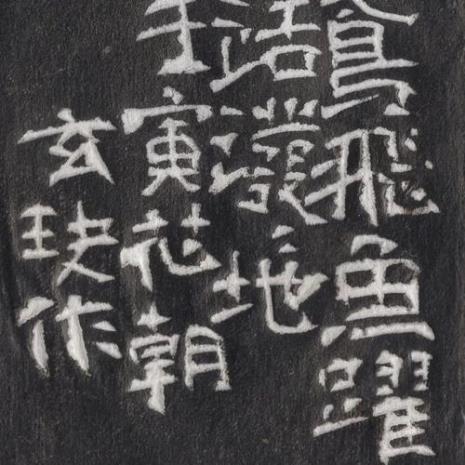 鳶飛魚躍
活潑々地
壬寅花朝
玄玦作